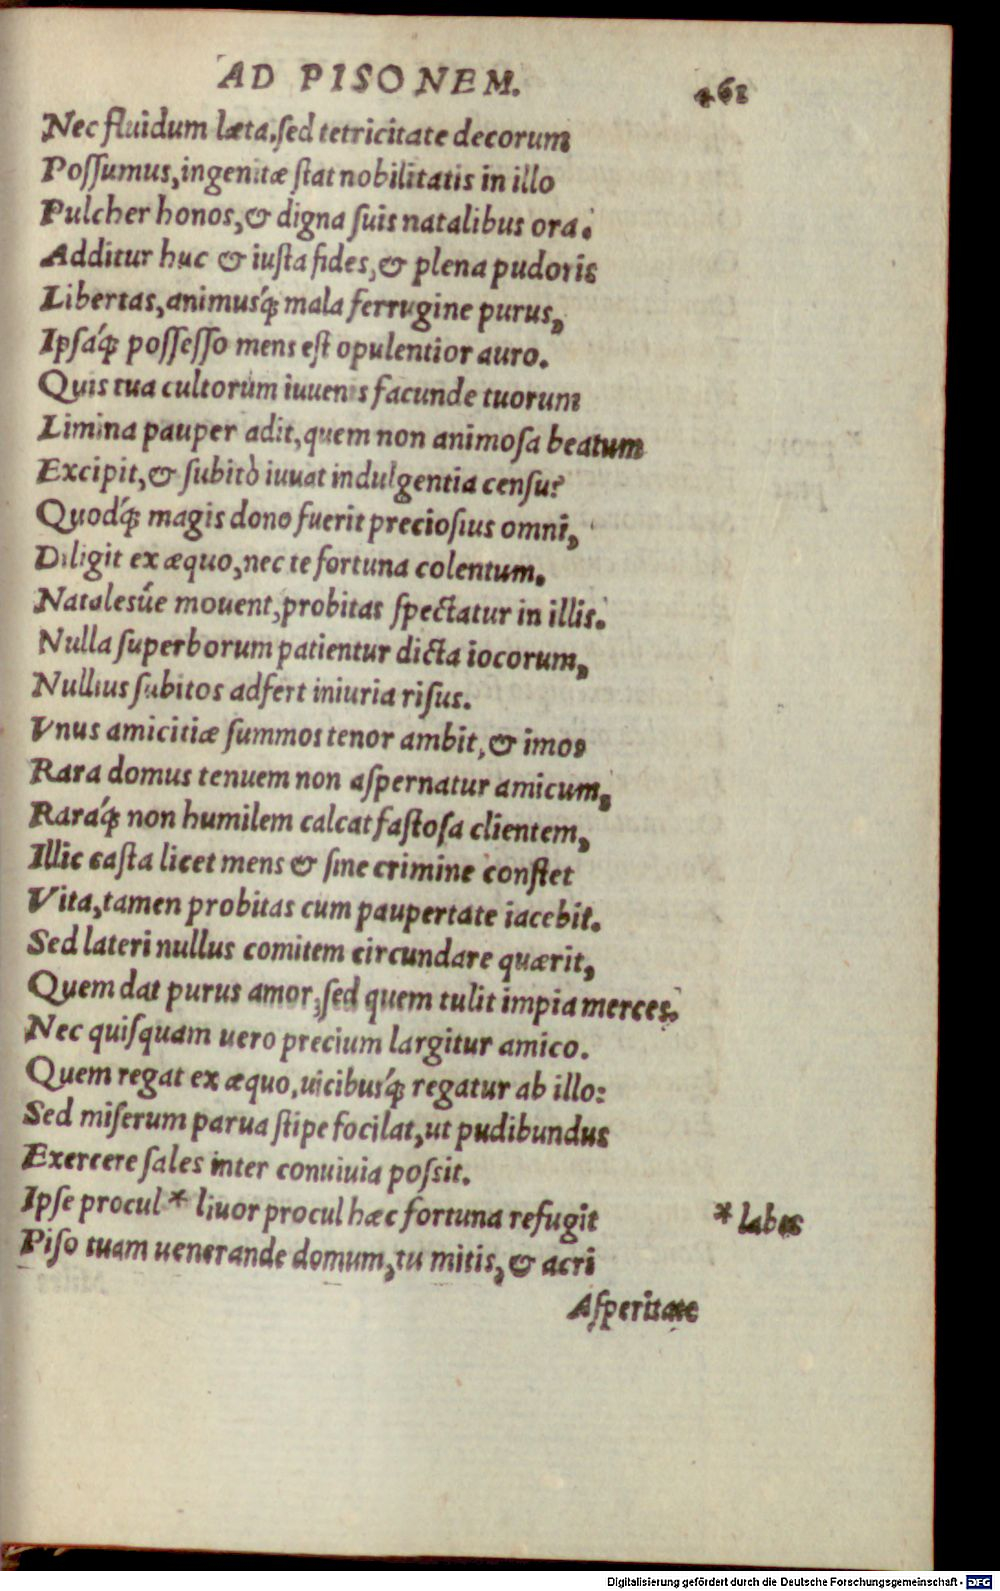 AD PISONEM. 461
Nec fluidum læta.ſed tetricitate decorum
Poſſumus,ingenitæ ſtat nobilitatis in illo
Pulcher honos,& digna ſuis natalibus ora.
Additur huc & iuſta fides,& plena pudoris
Libertas,animusq́; mala ferrugine purus,
Ipſaq́; poſſeſſo mens eſt opulentior auro.
Quis tua cultorum iuuenis facunde tuorum
Limina pauper adit,quem non animoſa beatum
Excipit,& ſubitò iuuat indulgentia cenſu?
Quodq́; magis dono fuerit precioſius omni,
Diligit ex æquo,nec te fortuna colentum.
Nataleśue mouent,probitas ſpectatur in illis.
Nulla ſuperborum patientur dicta iocorum,
Nullius ſubitos adfert iniuria riſus.
Vnus amicitiæ ſummos tenor ambit,& imos
Rara domus tenuem non aſpernatur amicum,
Raraq́; non humilem calcat faſtoſa clientem,
Illic caſta licet mens & ſine crimine conſtet
Vita,tamen probitas cum paupertate iacebit.
Sed lateri nullus comitem circundare quærit,
Quem dat purus amor,ſed quem tulit impia merces.
Nec quiſquam uero precium largitur amico.
Quem regat ex æquo,uicibusq́; regatur ab illo:
Sed miſerum parua ſtipe focilat,ut pudibundus
Exercere ſales inter conuiuia poſsit.
Ipſe procul * liuor procul hæc fortuna refugit * labes
Piſo tuam uenerande domum,tu mitis,& acri
Aſperitate
Digitalisierung gefördert durch die Deutsche Forschungsgemeinschaft - DFG